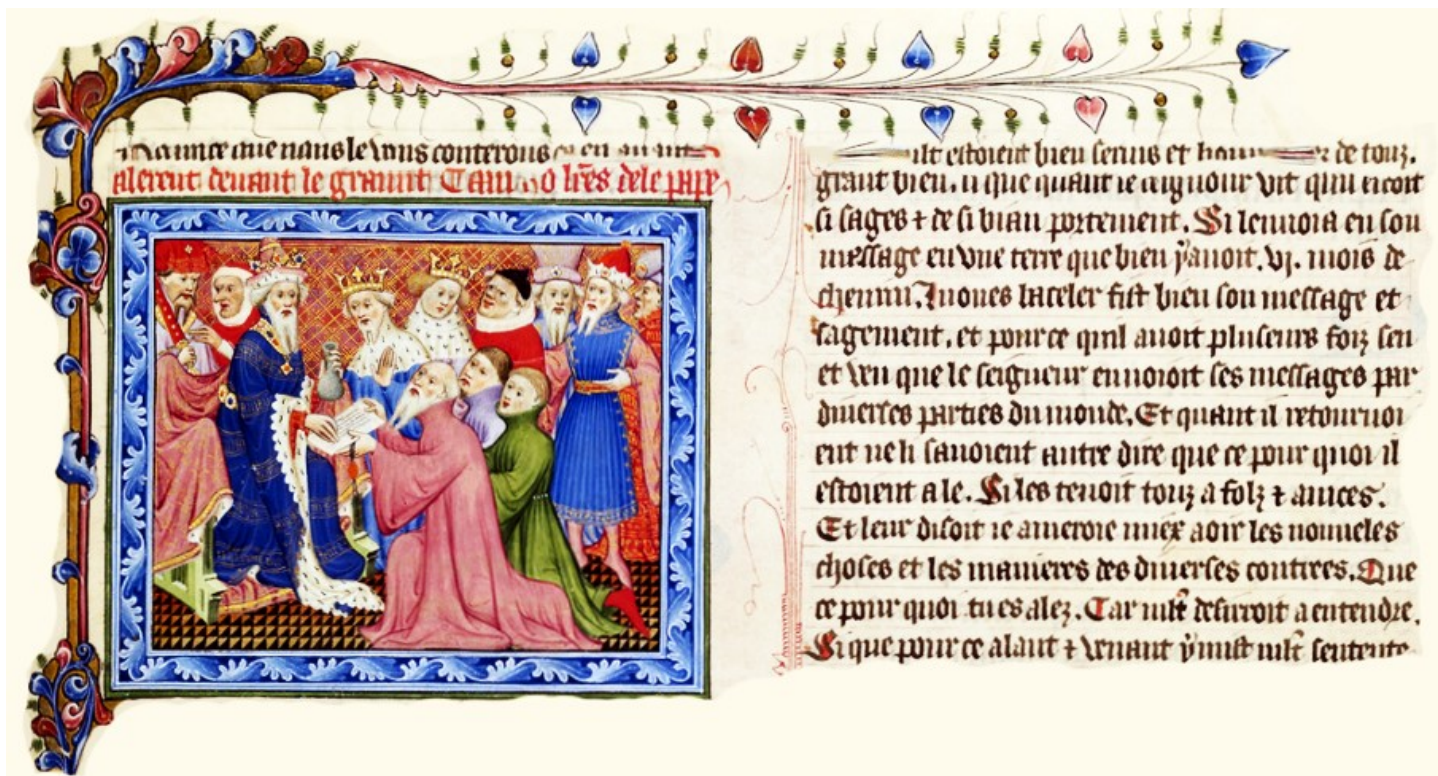 que nous le vous conterons en auant
alerent deuant le grannt les lrēs dele pape
ilt estoient bien seruis et de touz.
grant bien. que quant le seignour vit quil estoit
si sages ⁊ de si biau portement. Si lenuoia en son
message en vne terre que bien ẏ auoit. vj. mois de
chemin. laceler fist bien son message et
sagement. et pour ce quil auoit pluseurs foiz seu
et veu que le seigneur enuoioit ses messages par
diuerses parties du monde. Et quant il retournoi
ent ne li sauoient autre dire que ce pour quoi il
estoient ale. Si les tenoit touz a folz ⁊ a nices.
Et leur disoit ie ameroie miex aoir les nouueles
choses et les manieres des diuerses contrees. Que
ce pour quoi tu es alez. Car mlt̄ desiroit a entendre.
Si que pour ce alant ⁊ venant ẏ mist mlt̄ sentente